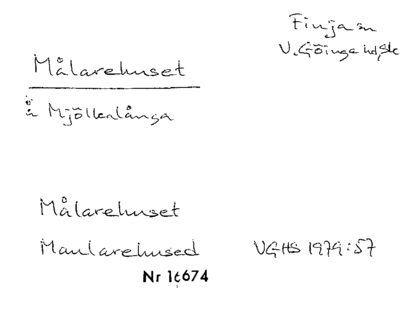 Finja sn
V. Göinge hd, Sk
Målarehuset
å Mjölkalånga
Målarehuset
Maularehused VGHS 1979:57
Nr 16674